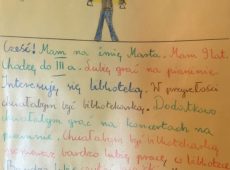 Cześć! Mam na imię Marta. Mam 9 lat.
Chodzę do III a. Lubię grać na pianinie.
Interesuję się biblioteką. W przyszłości
chciałabym być bibliotekarką. Dodatkowo
chciałabym grać na koncertach na
pianinie. Chciałabym być bibliotekarką
bardzo lubię pracę w bibliotece